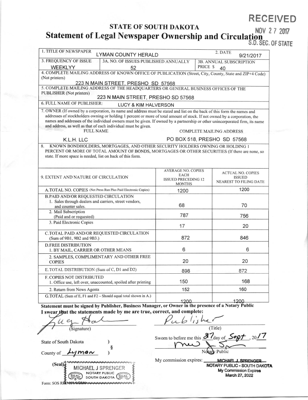 RECEIVED
NOV 27 2017
S.D. SEC. OF STATE
STATE OF SOUTH DAKOTA
Statement of Legal Newspaper Ownership and Circulation
1. TITLE OF NEWSPAPER
LYMAN COUNTY HERALD
2. DATE
9/21/2017
3. FREQUENCY OF ISSUE
WEEKLYY
3A. NO. OF ISSUES PUBLISHED ANNUALLY
52
3B. ANNUAL SUBSCRIPTION PRICE $ 40
4. COMPLETE MAILING ADDRESS OF KNOWN OFFICE OF PUBLICATION (Street, City, County, State and ZIP+4 Code)
(Not printers)
223 N MAIN STREET, PRESHO SD 57568
5. COMPLETE MAILING ADDRESS OF THE HEADQUARTERS OR GENERAL BUSINESS OFFICES OF THE
PUBLISHER (Not printer)
223 N MAIN STREET, PRESHO SD 57568
6. FULL NAME OF PUBLISHER:
LUCY & KIM HALVERSON
7. OWNER (If owned by a corporation, its name and address must be stated and list on the back of this form the names and
addresses of stockholders owning or holding 1 percent or more of total amount of stock. If not owned by a corporation, the
names and addresses of the individual owners must be given. If owned by a partnership or other unincorporated firm, its name
and address, as well as that of each individual must be given).
FULL NAME
COMPLETE MAILING ADDRESS
K.L.H. LLC
PO BOX 518, PRESHO SD 57568
8. KNOWN BONDHOLDERS, MORTGAGEES, AND OTHER SECURITY HOLDERS OWNING OR HOLDING 1
PERCENT OR MORE OF TOTAL AMOUNT OF BONDS, MORTGAGES OR OTHER SECURITIES (If there are none, so
state. If more space is needed, list on back of this form).
9. EXTENT AND NATURE OF CIRCULATION
AVERAGE NO. COPIES
EACH
ISSUED PRECEDING 12
MONTHS
ACTUAL NO. COPIES
ISSUED
NEAREST TO FILING DATE
A. TOTAL NO. COPIES
1200
1200
B. PAID AND/OR REQUESTED CIRCULATION
1. Sales through dealers and carriers, street vendors,
and counter sales.
68
70
2. Mail Subscription
(Paid and/or requested)
787
756
3. Paid Electronic Copies
17
20
C. TOTAL PAID AND/OR REQUESTED CIRCULATION
(Sum of 9B1, 9B2 and 9B3.)
872
846
D. FREE DISTRIBUTION
1. BY MAIL, CARRIER OR OTHER MEANS
6
6
2. SAMPLES, COMPLIMENTARY AND OTHER FREE
COPIES
20
20
E. TOTAL DISTRIBUTION (Sum of C, D1 and D2)
898
872
F. COPIES NOT DISTRIBUTED
1. Office use, left over, unaccounted, spoiled after printing
150
168
2. Return from News Agents
152
160
G. TOTAL (Sum of E, F1 and F2 - Should equal total shown in A.)
1200
1200
Statement must be signed by Publisher, Business Manager, or Owner in the presence of a Notary Public
I swear that the statements made by me are true, correct, and complete:
Publisher
(Signature)
(Title)
State of South Dakota )
County of Lyman )
Sworn to before me this 27 day of Sept 2017
Notary Public
(Seal)
MICHAEL J SPRENGER
NOTARY PUBLIC
SOUTH DAKOTA
My commission expires:
MICHAEL J. SPRENGER
NOTARY PUBLIC - SOUTH DAKOTA
My Commission Expires
March 27, 2022